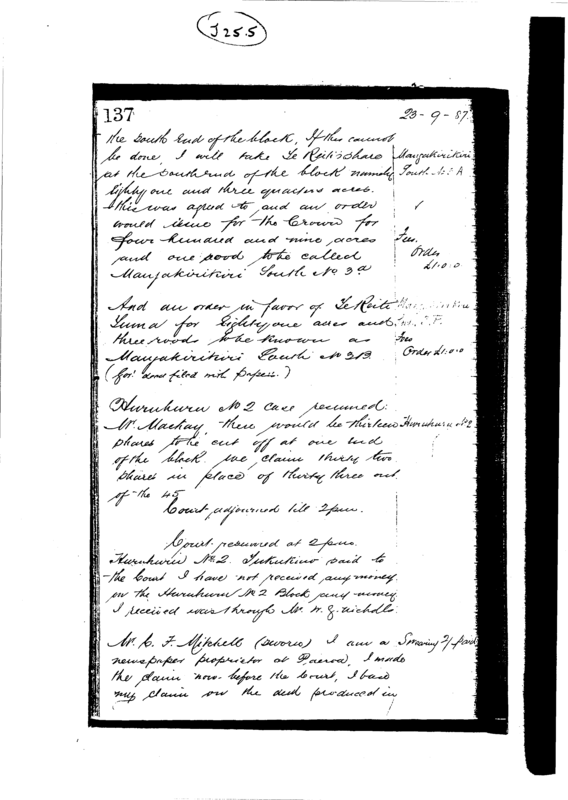 J 25.5
137
23-9-87
the South End of the block, If this cannot
be done, I will take Te Reiti's share
at the South end of the block namely
Eighty one and three quarters acres.
This was agreed to and an order
would issue for the Crown for
four hundred and nine acres
and one rood to be called
Mangakirikiri South No 2a
Mangakirikiri
South No 2 A
Fees.
Order
£1.0.0
And an order in favor of Te Reiti
for Eighty one acres and
three roods to be known as
Mangakirikiri South No 2B.
filed with Papers.)
Fees
Order £1.0.0
Huruhuru No 2 case resumed.
Mr. Mackay then would be thirteen
shares to be cut off at one end
of the block. We claim thirty two
shares in place of thirty three out
of the 45
Court adjourned till 2 pm.
Huruhuru No 2
Court resumed at 2 pm.
Huruhuru No 2. Tukukino said to
the Court I have not received any money
on the Huruhuru No 2 Block any money
I received was through Mr. W. Nicholls.
Mr. C. F. Mitchell (sworn) I am a
newspaper proprietor at Paeroa, I made
the claim now before the Court, I base
my claim on the deed produced in
Swearing 2/ paid